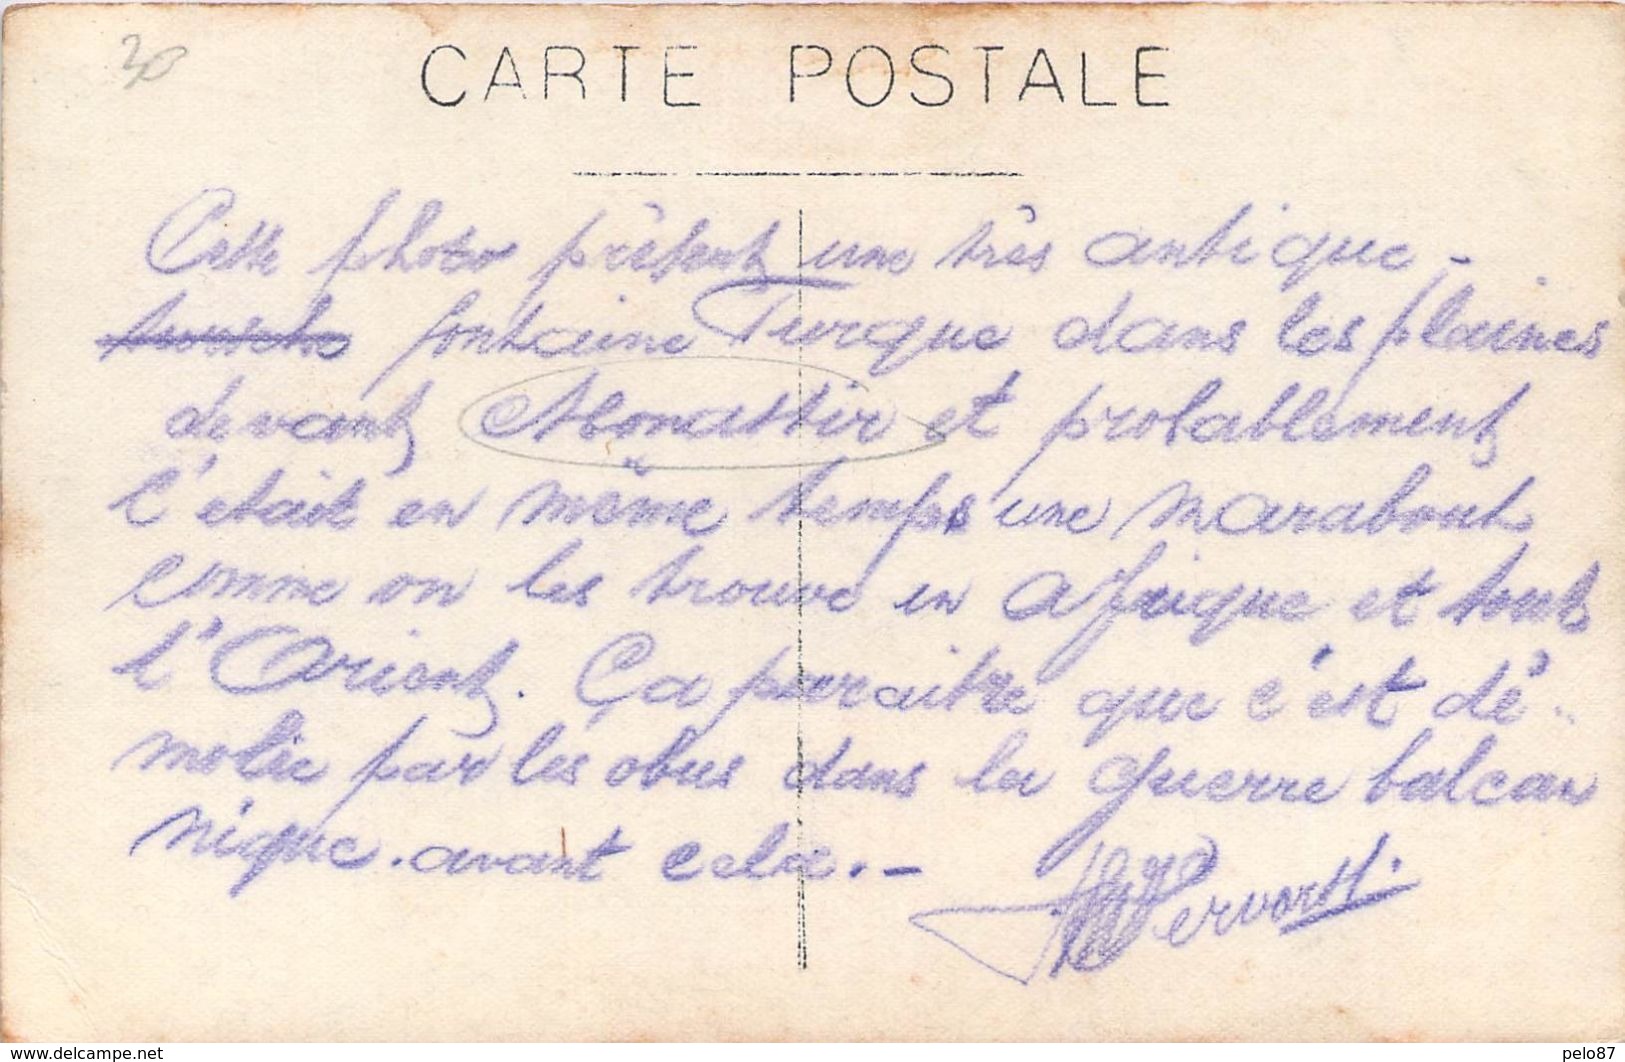 30
CARTE POSTALE
Cette photo présent une très antique -
fontaine Turque dans les plaines
devant Monastir et probablement
c'était en même temps une marabout
comme on les trouve en Afrique et tout
l'Orient. Ça paraitre que c'est dé-
molie par les obus dans la guerre balcan
nique. avant cela. -
www.delcampe.net
pelo87